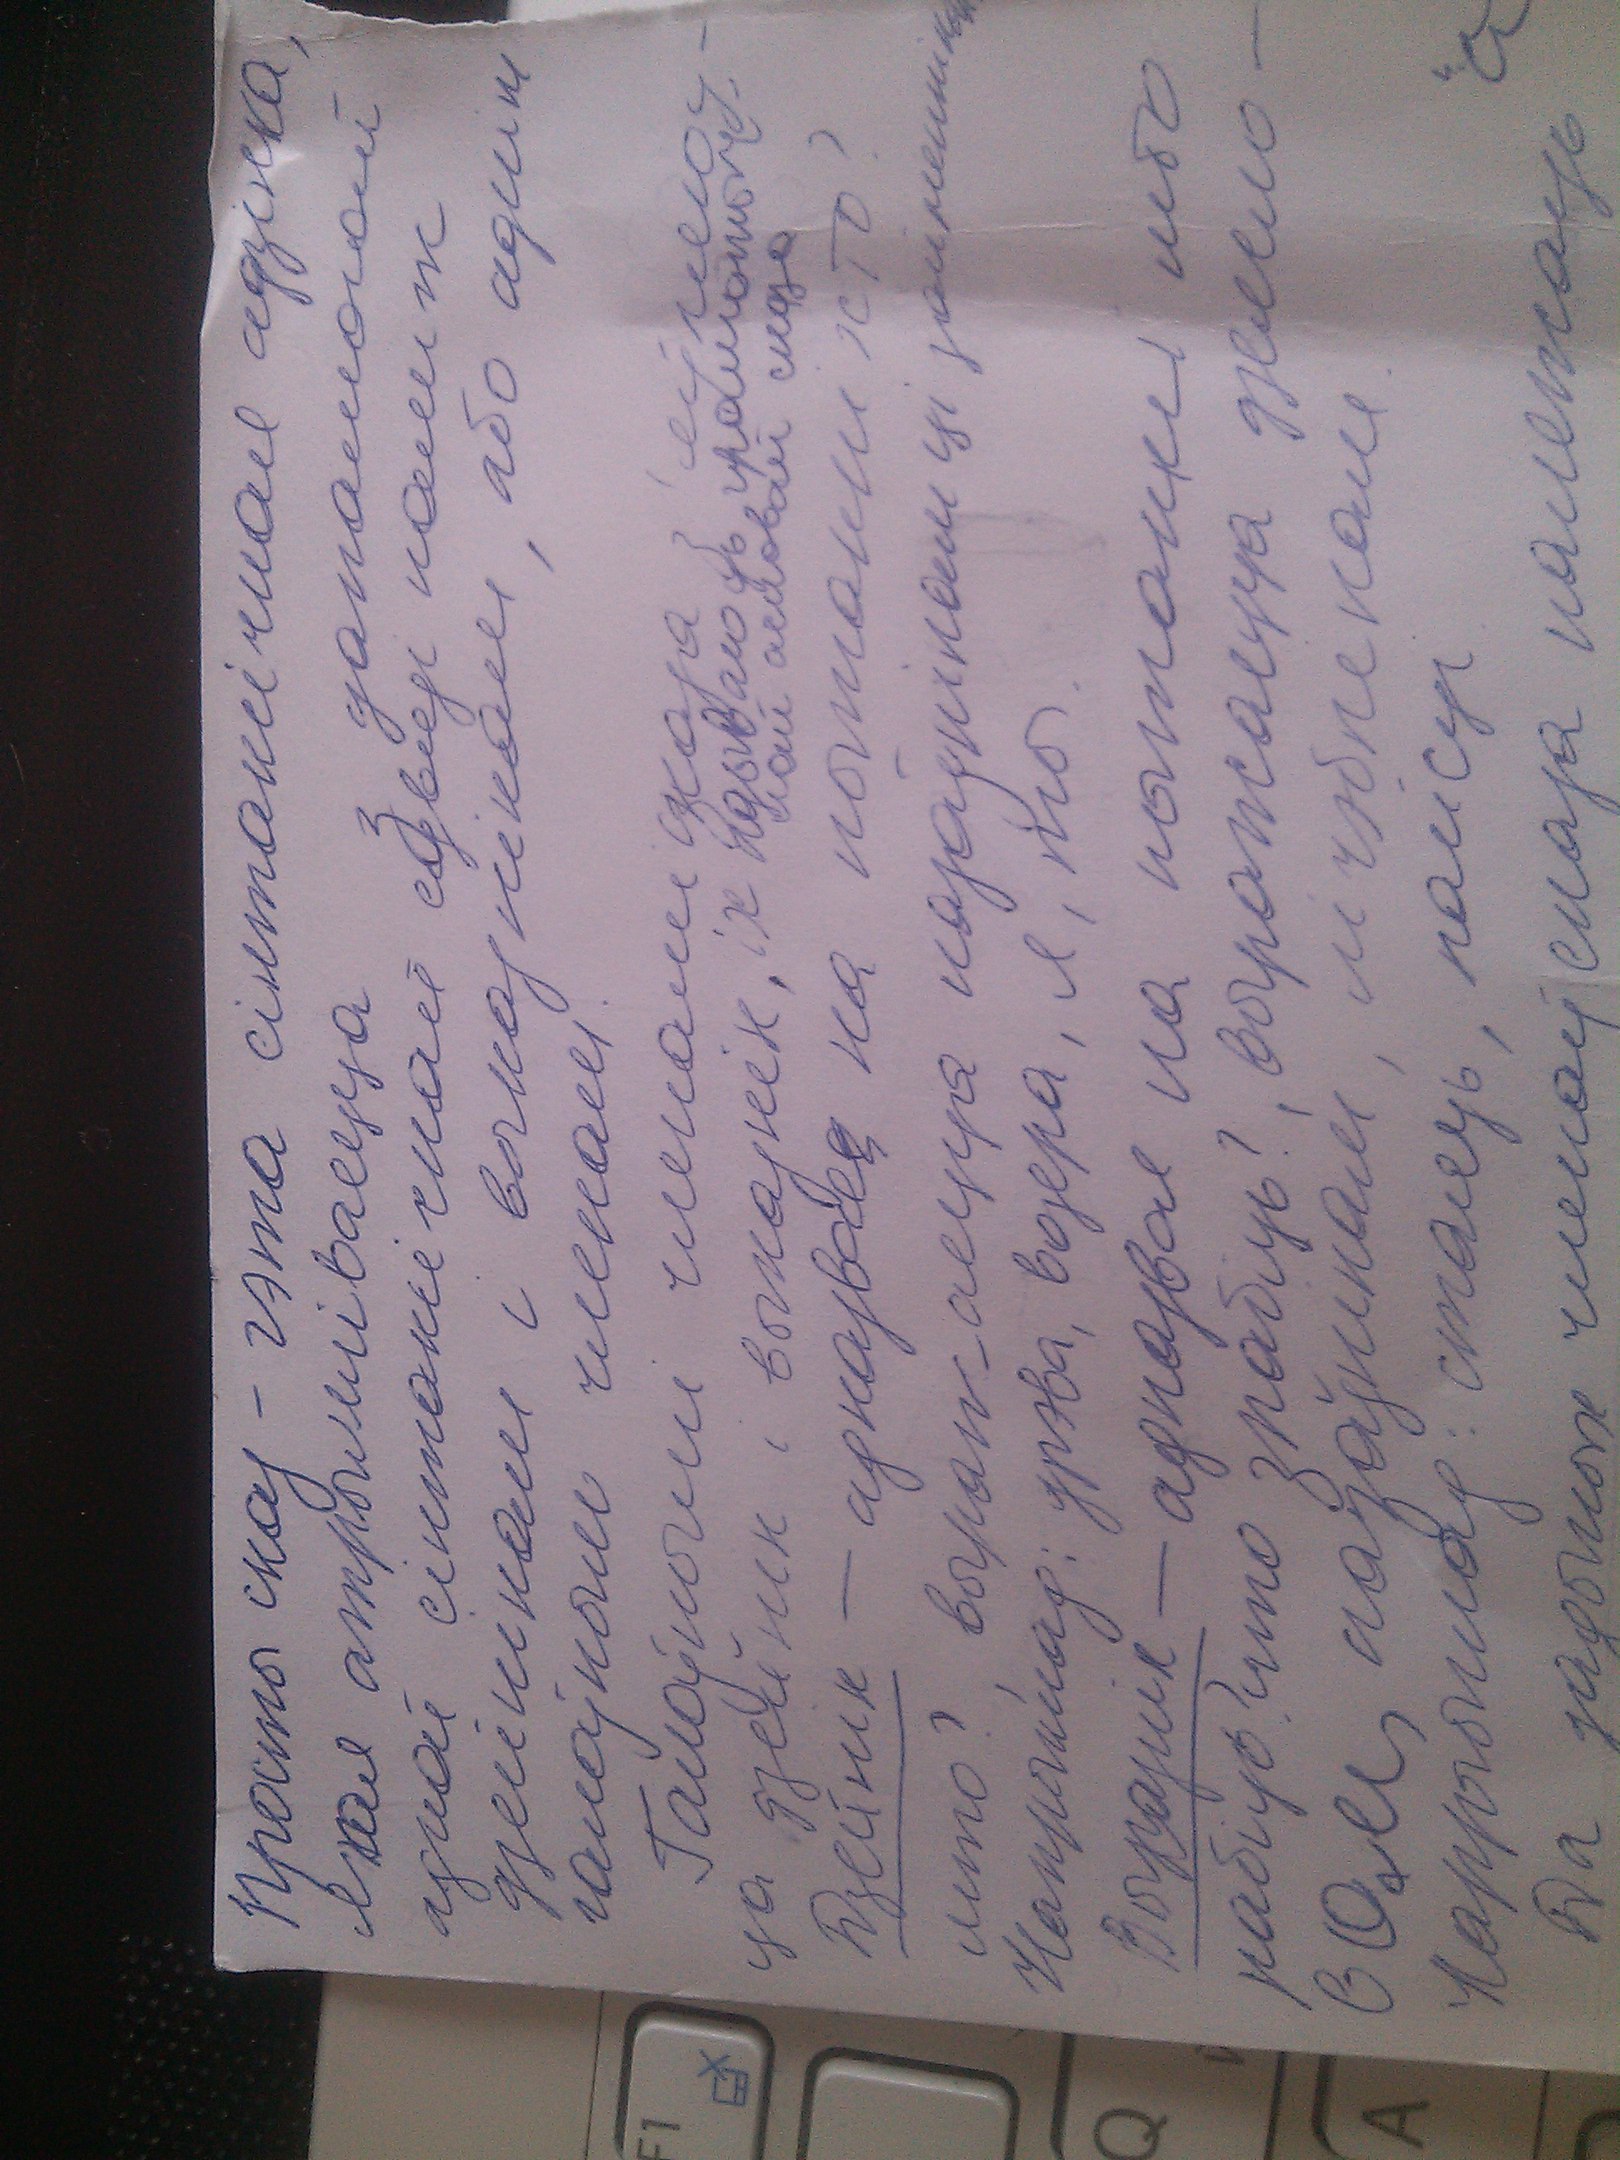 Просты сказ – гэта сінтаксічная адзінка,
якая атрымліваецца з дапамогай
адной сінтаксічнай сувязі паміж
дзейнікам і выказнікам, або адным
галоўным членам.
Галоўнымі членамі сказа з'яўляю-
ца дзейнік і выказнік, іх называюць граматычнай асновай сказа
Дзейнік – адказвае на пытанні хто?
што?, выраж-аецца назоўнікам ці займеннікам
Напрыклад: урва, возера, я, ты.
Выказнік – адказвае на пытанні што
рабіць? што зрабіць?, выражаецца дзеясло-
вам, назоўнікам, лічэбнікам.
Напрыклад: стаяць, пяцся
Да галоўных членаў сказа належаць
F1
Q
A